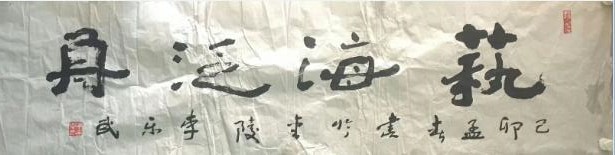 藝海泛舟
己卯孟春書於金陵李乐武